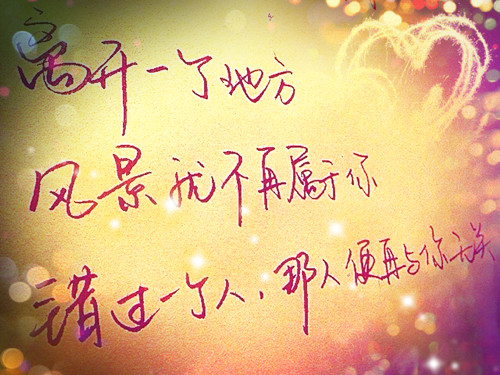 离开一个地方
风景就不再属于你
错过一个人，那人便再与你无关